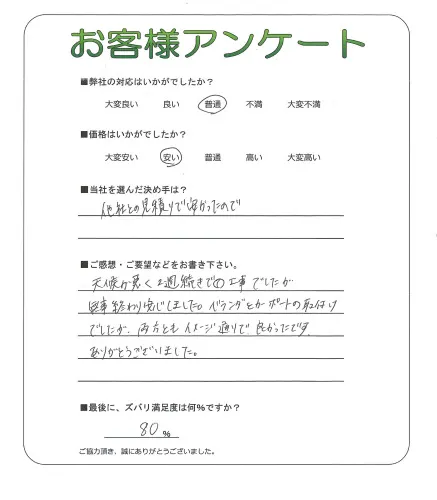 お客様アンケート
■弊社の対応はいかがでしたか？
大変良い 良い 普通 不満 大変不満
■価格はいかがでしたか？
大変安い 安い 普通 高い 大変高い
■当社を選んだ決め手は？
他社との見積りで安かったので
■ご感想・ご要望などをお書き下さい。
天候が悪く2週続きでの工事でしたが
無事終わり安心しました。ベランダとカーポートの取付け
でしたが、両方ともイメージ通りで良かったです
ありがとうございました。
■最後に、ズバリ満足度は何%ですか？
80 %
ご協力頂き、誠にありがとうございました。